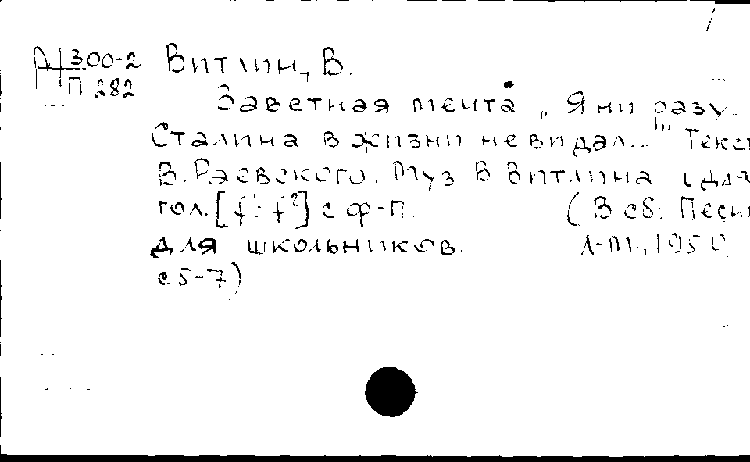 Д 300-2
П 282
Витлин, В.
Заветная мечта „Я ни разу
Сталина в жизни не видал..." Текст
В. Раевского. Муз В Витлина
гол. [f¹ : f²] с ф-п. (В сб: Песни
для школьников. Л-М, 1950
с 5-7)